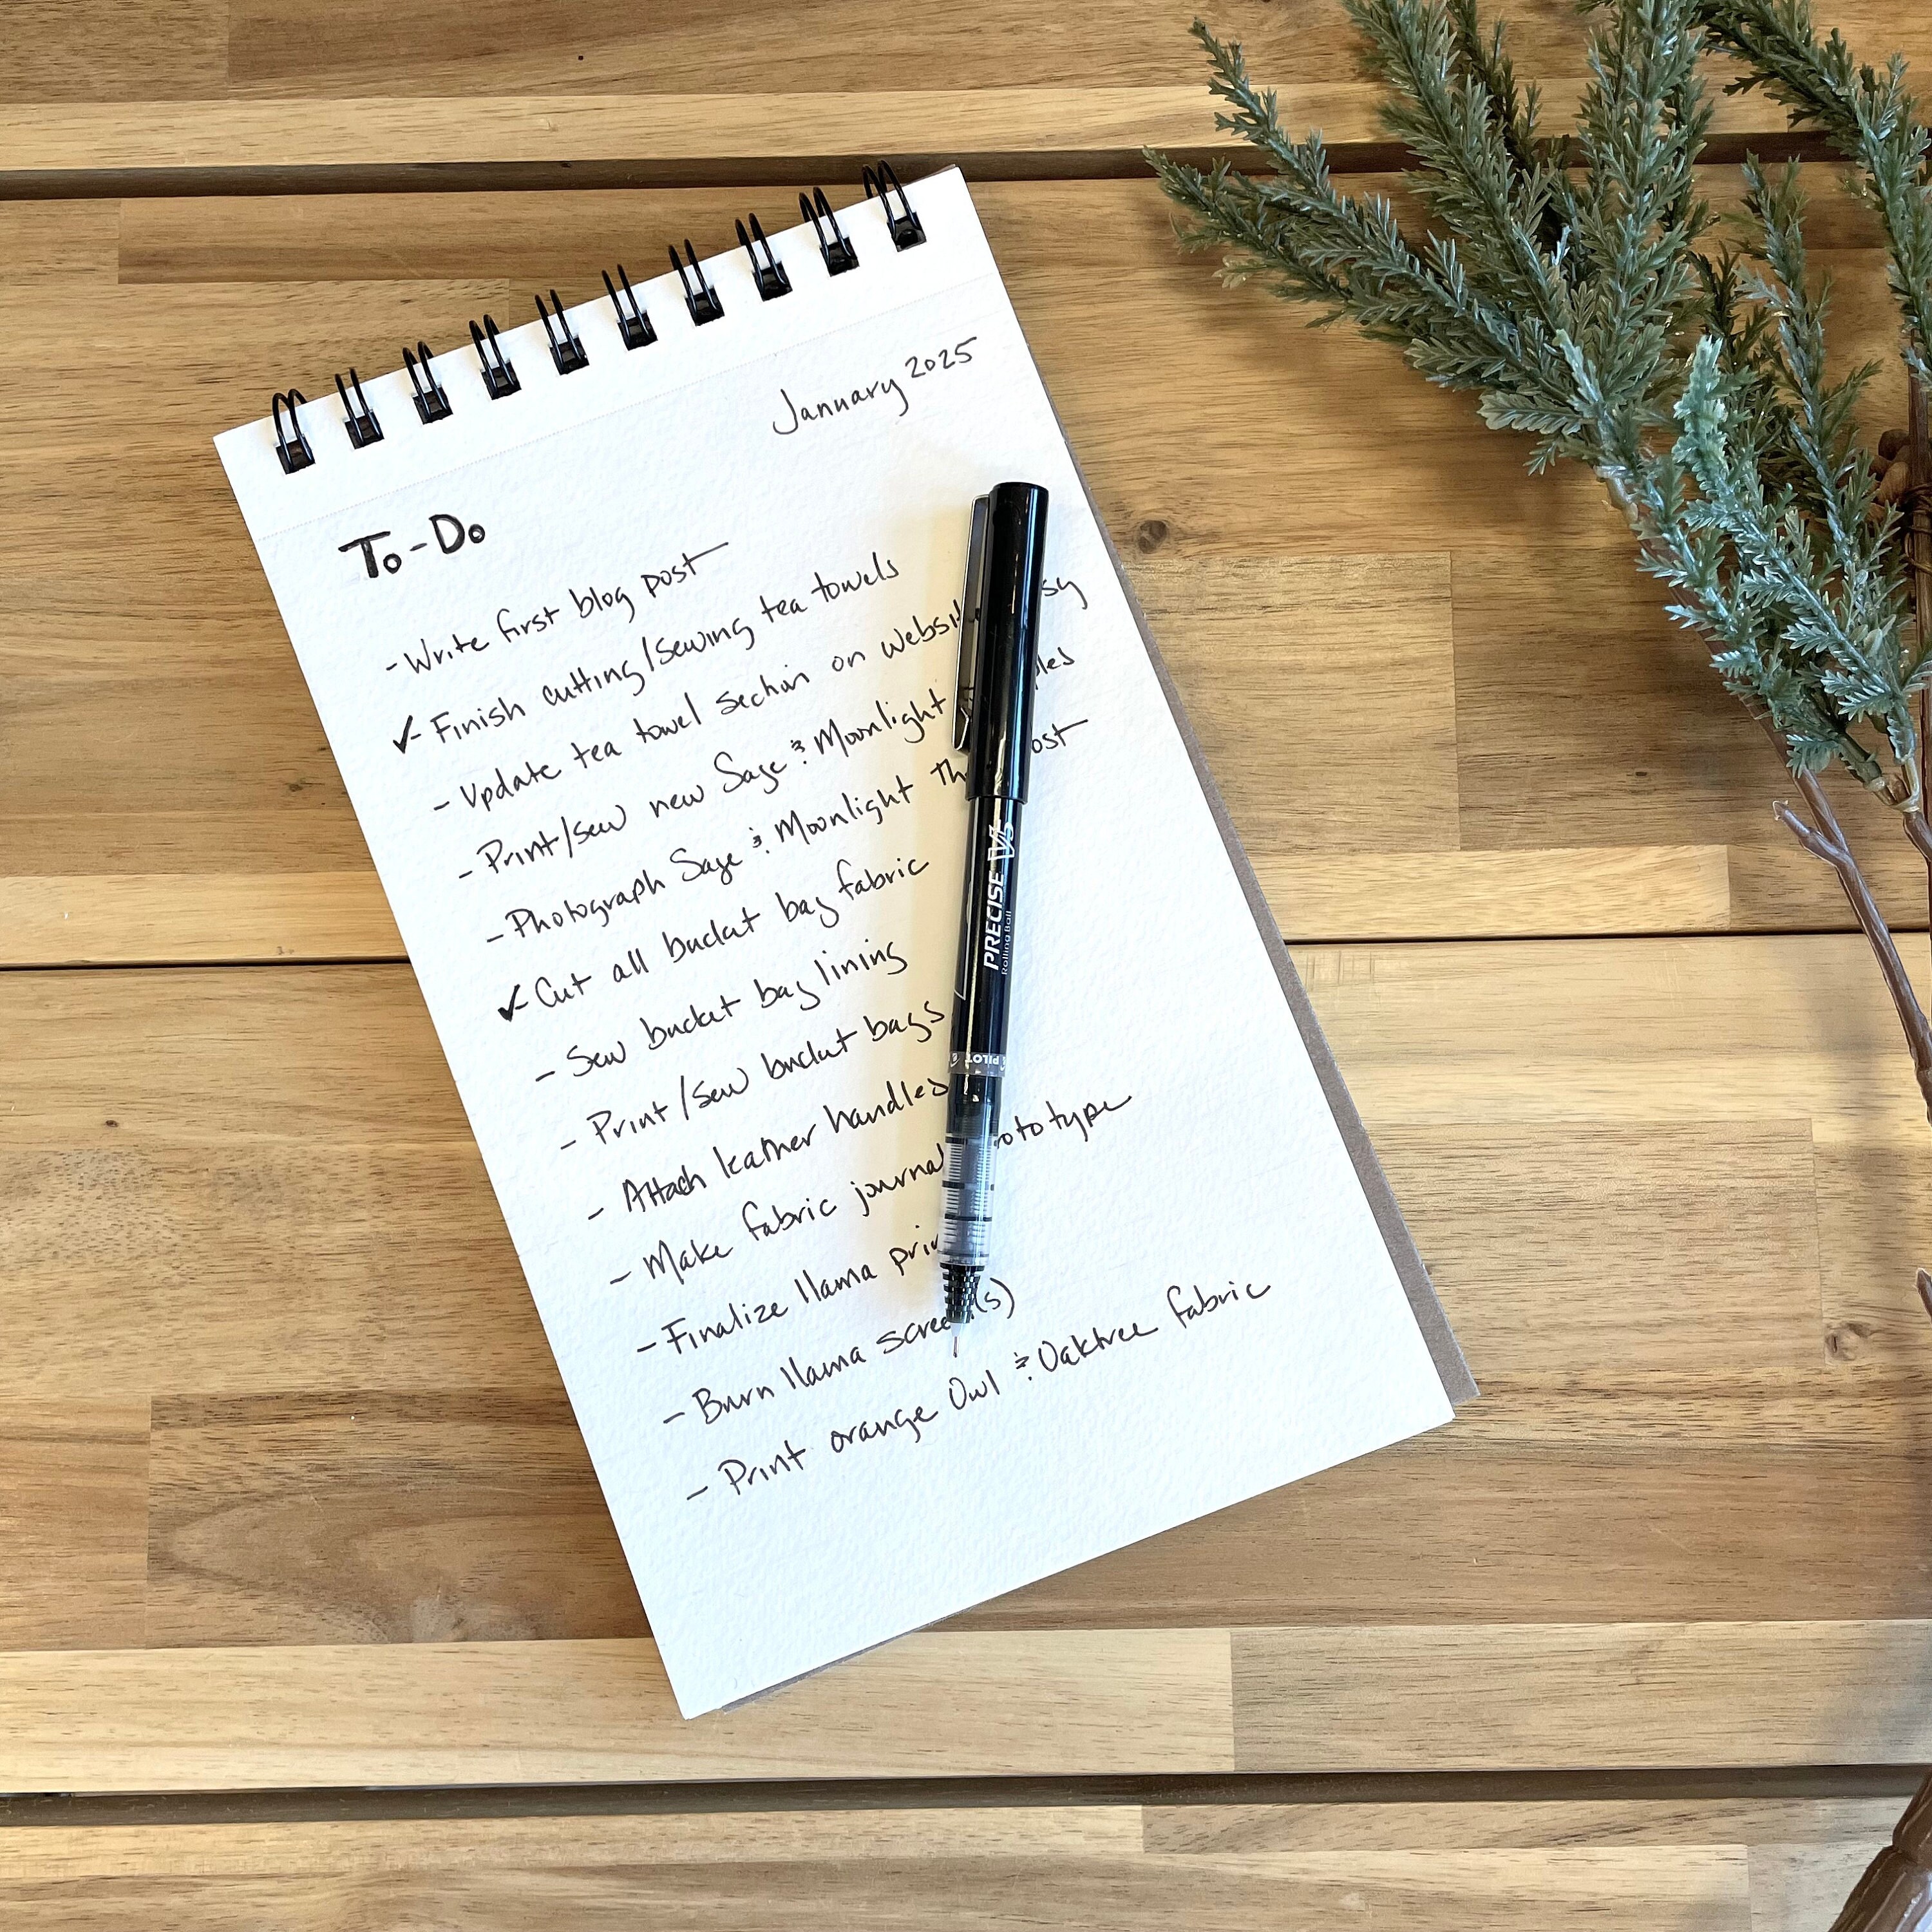 January 2025
To-Do
- Write first blog post
✓- Finish cutting/sewing tea towels
- Update tea towel section on websit sy
- Print/sew new Sage & Moonlight les
- Photograph Sage & Moonlight th ost
✓- Cut all bucket bag fabric
- Sew bucket bag lining
- Print/sew bucket bags
- Attach leather handles
- Make fabric journal ototype
- Finalize llama prin
- Burn llama scree (s)
- Print orange Owl & Oaktree fabric
PRECISE V5
Rolling Ball
PILOT